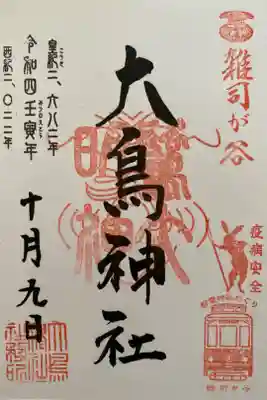 雑司が谷
疫病安全
大鳥神社
皇紀二、六八二年
令和四壬寅年
西紀二、〇二二年
十月九日